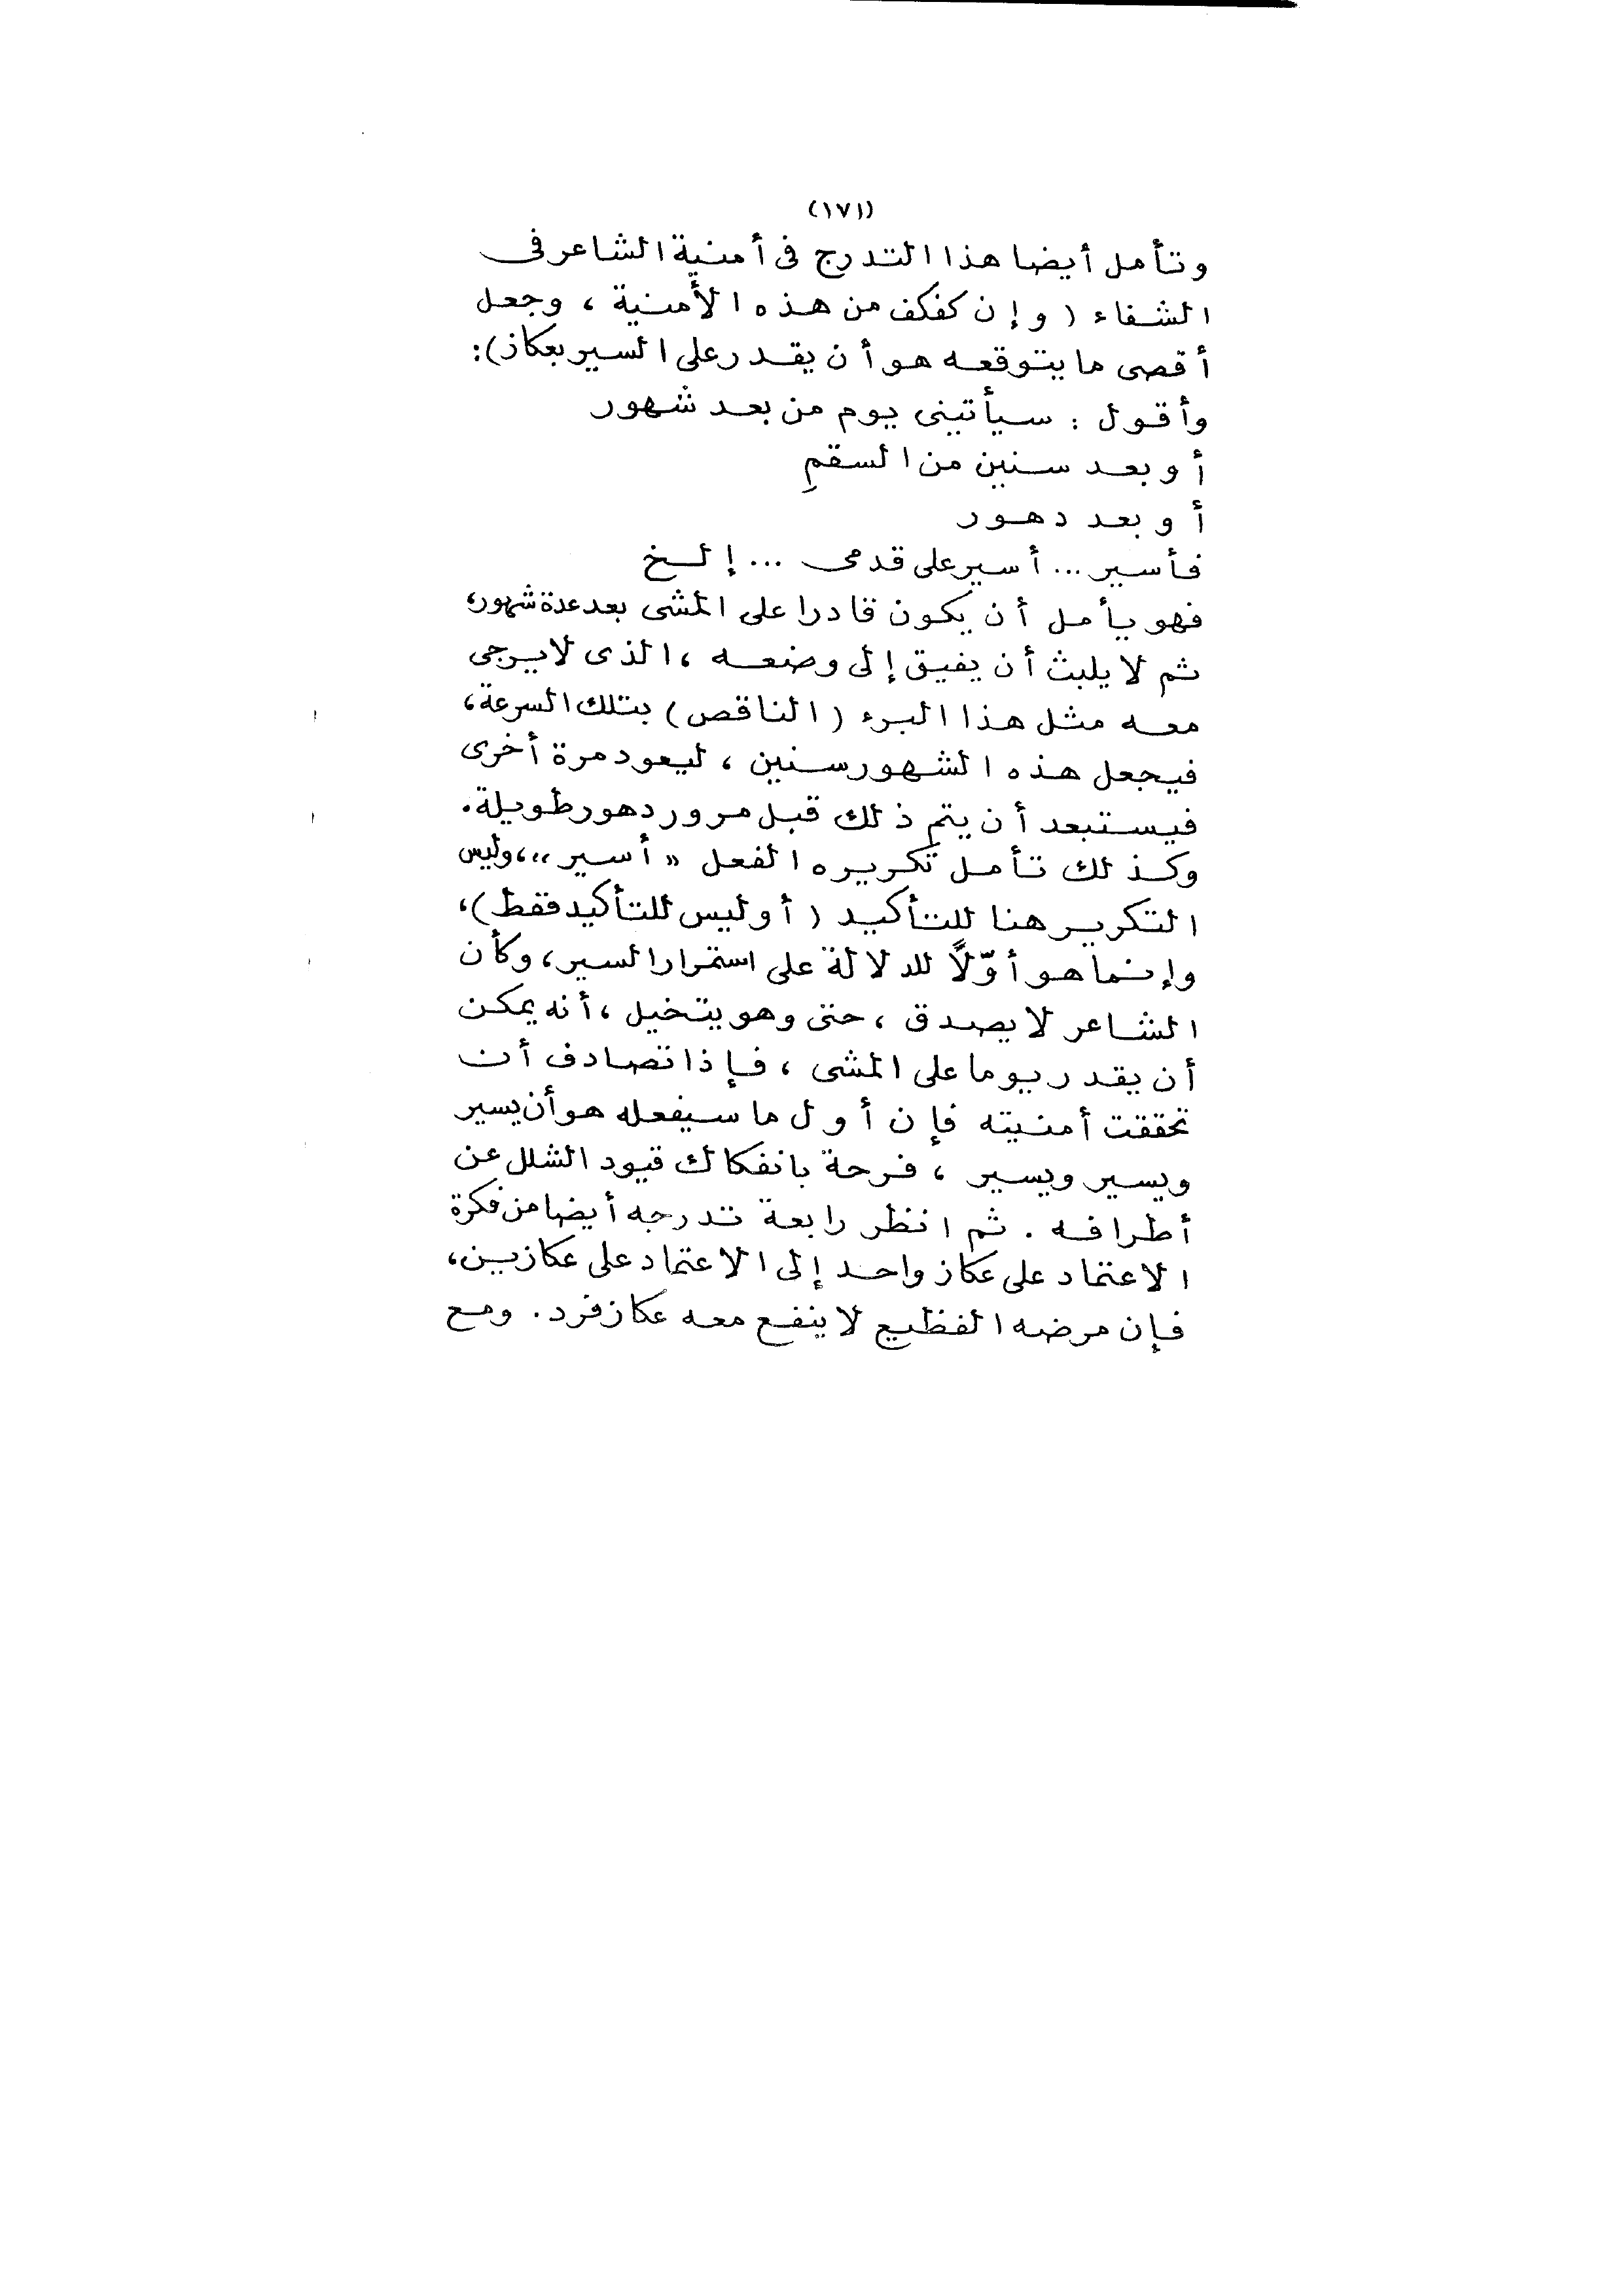 (١٧١)
وتأمل أيضا هذا التدرج فى أمنية الشاعر فى
الشفاء (وإن كفكف من هذه الأمنية ، وجعل
أقصى ما يتوقعه هو أن يقدر على السير بعكاز):
وأقول : سيأتينى يوم من بعد شهور
أو بعد سنين من السقمِ
أو بعد دهور
فأسير ... أسير على قدمى ... إلخ
فهو يأمل أن يكون قادرا على المشى بعد عدة شهور،
ثم لا يلبث أن يفيق إلى وضعه ، الذى لا يرجى
معه مثل هذا البرء (الناقص) بتلك السرعة،
فيجعل هذه الشهور سنين ، ليعود مرة أخرى
فيستبعد أن يتم ذلك قبل مرور دهور طويلة.
وكذلك تأمل تكريره الفعل «أسير»، وليس
التكرير هنا للتأكيد (أو ليس للتأكيد فقط)،
وإنما هو أوّلًا للدلالة على استمرار السير، وكأن
الشاعر لا يصدق ، حتى وهو يتخيل ، أنه يمكن
أن يقدر يوما على المشى ، فإذا تصادف أن
تحققت أمنيته فإن أول ما سيفعله هو أن يسير
ويسير ويسير ، فرحة بانفكاك قيود الشلل عن
أطرافه . ثم انظر رابعة تدرجه أيضا من فكرة
الاعتماد على عكاز واحد إلى الاعتماد على عكازين،
فإن مرضه الفظيع لا ينفع معه عكاز فرد . ومع